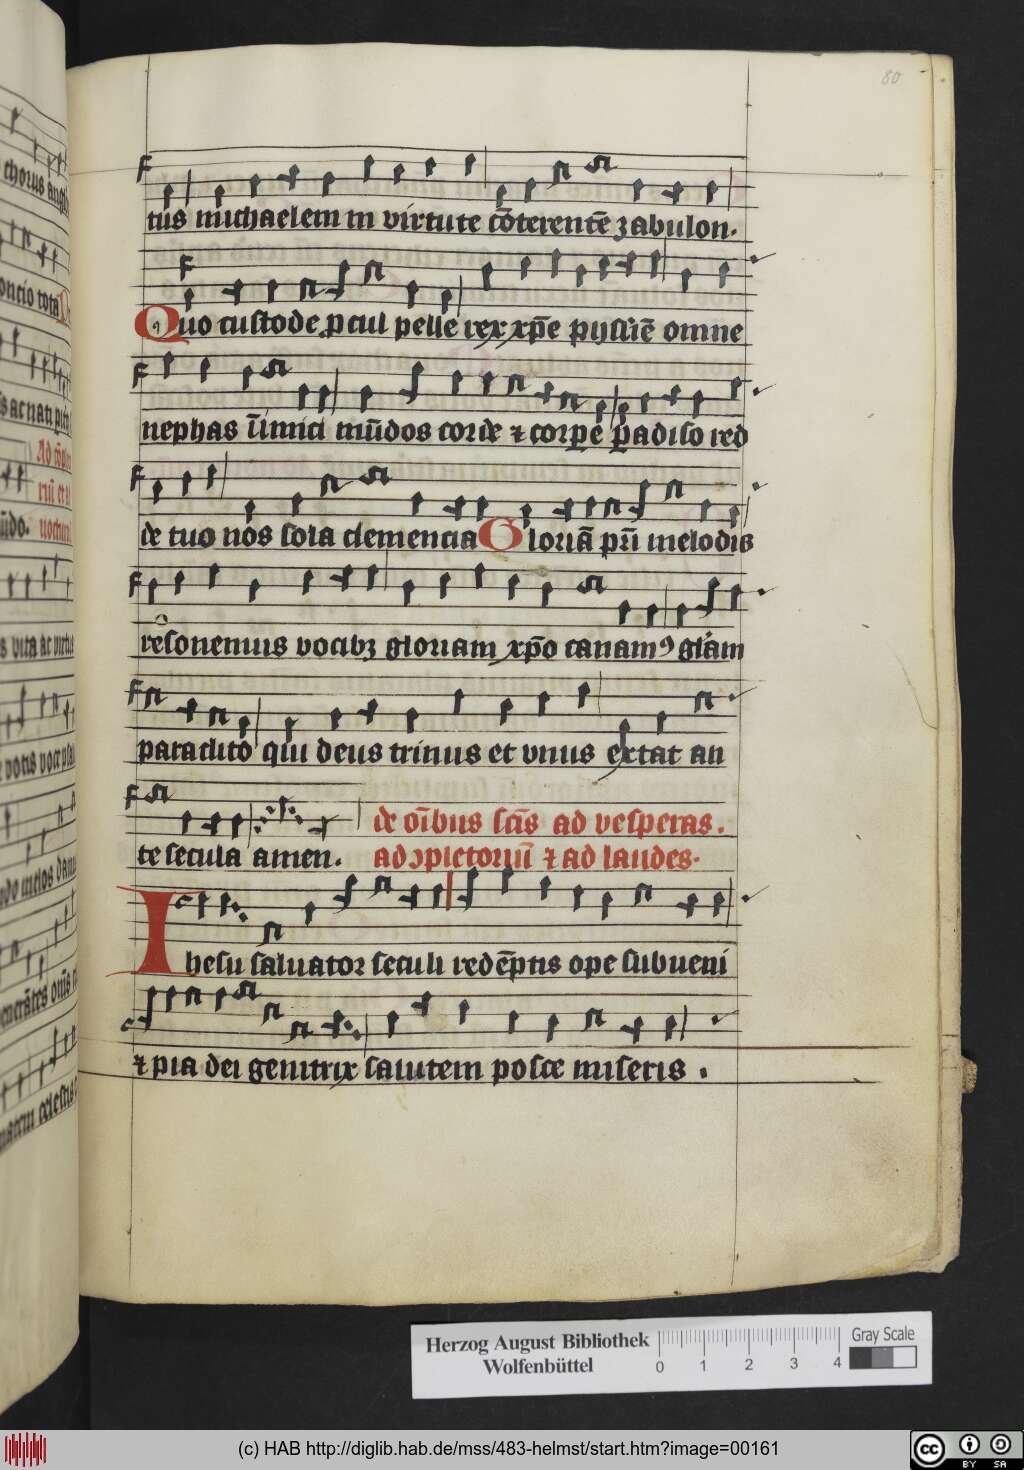 80
tus michaelem in virtute cōterentē zabulon.
Quo custode ꝓcul pelle rex xp̄e pijssiē omne
nephas īimici mūdos corde ⁊ corpe padiso red
de tuo nos sola clemencia Gloriā pr̄i melodis
resonemus vocibꝫ gloriam xp̄o canamꝰ glām
paraclito qui deus trinus et vnus extat an
te secula amen. de oībus sctīs ad vesperas.
ad ꝯpletoriū ⁊ ad laudes.
Ihesu saluator seculi redēptis ope subueni
⁊ pia dei genitrix salutem posce miseris .
Herzog August Bibliothek
Wolfenbüttel
0 1 2 3 4
Gray Scale
(c) HAB http://diglib.hab.de/mss/483-helmst/start.htm?image=00161
cc BY SA